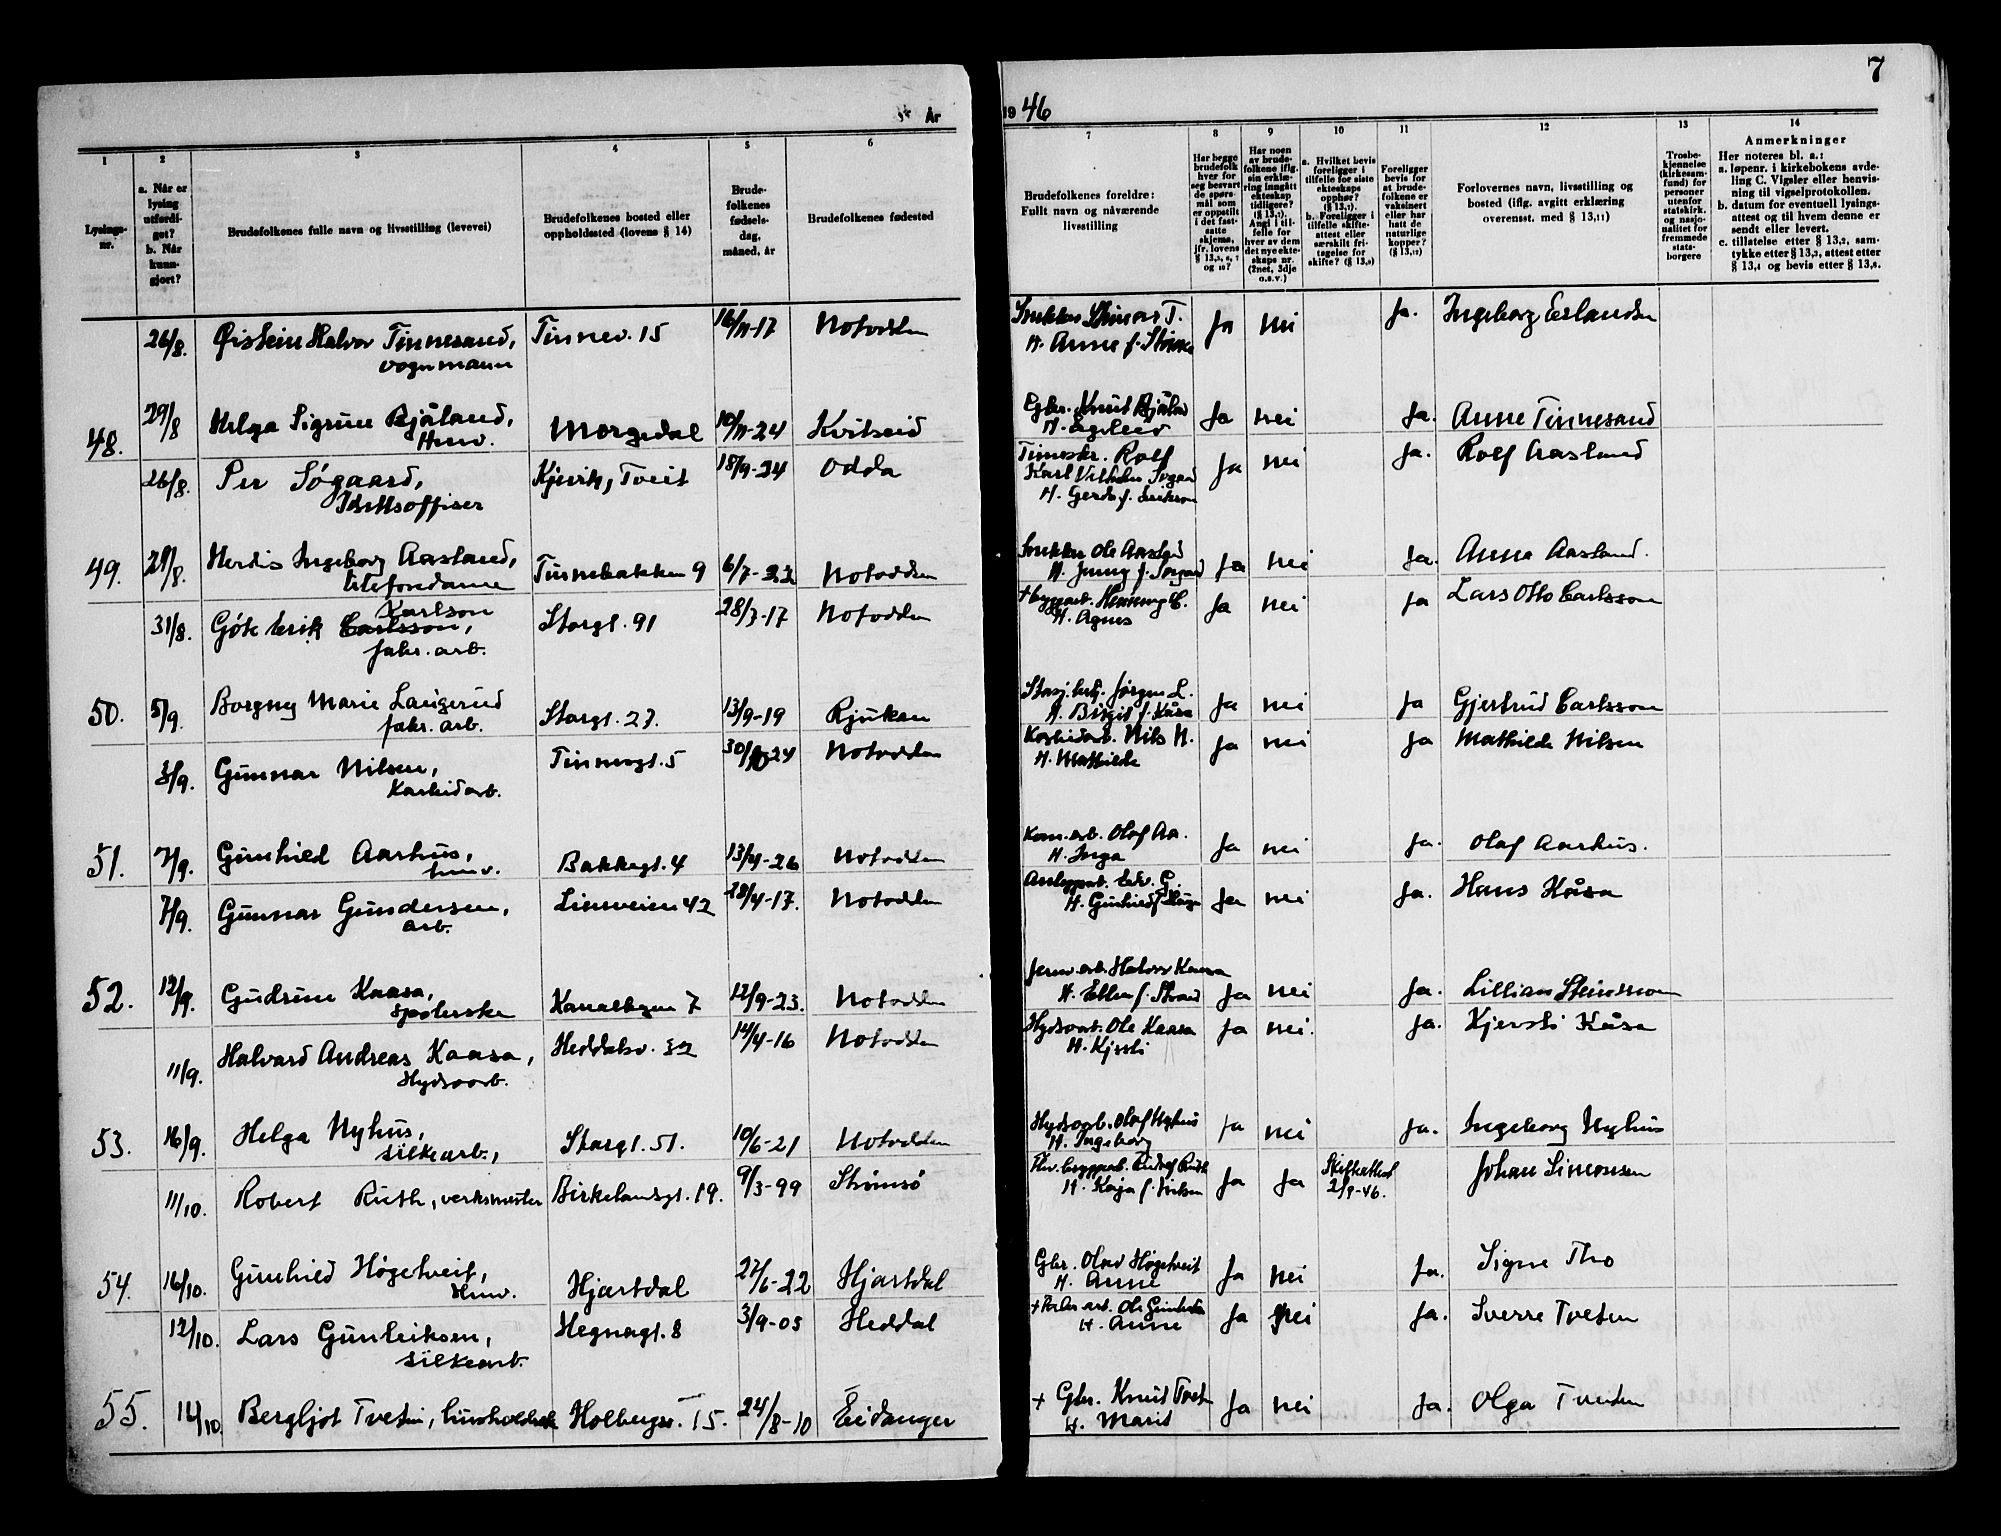 7
År
19 46
1
2
3
4
5
6
7
8
9
10
11
12
13
14
Lysings-
nr.
a. Når er
lysing
utferdi-
get?
b. Når
kunn-
gjort?
Brudefolkenes fulle navn og livsstilling (levevei)
Brudefolkenes bosted eller
oppholdssted (lovens § 14)
Brude-
folkenes
fødsels-
dag,
måned, år
Brudefolkenes fødested
Brudefolkenes foreldre:
Fullt navn og nåværende
livsstilling
Har begge
brudefolk
hver for
seg besvart
de spørs-
mål som
er oppstilt
i det fast-
satte
skjema,
jfr. lovens
§ 13,3, 6, 7
og 10?
Har noen
av brude-
folkene iflg.
sin erklæ-
ring inngått
ekteskap
tidligere?
(§ 13,7).
Angi i til-
felle for
hver av dem
det nye ekte-
skaps nr.
(2net, 3dje
o.s.v.)
a. Hvilket bevis
foreligger i
tilfelle for siste
ekteskaps
opphør?
(§ 13,7).
b. Foreligger i
tilfelle skifte-
attest eller
særskilt fri-
tagelse for
skifte? (§ 13,8)
Foreligger
bevis for
at brude-
folkene er
vaksinert
eller har
hatt de
naturlige
kopper?
(§ 13,12)
Forlovernes navn, livsstilling og
bosted (iflg. avgitt erklæring
overensst. med § 13,11)
Trosbe-
kjennelse
(kirkesam-
fund) for
personer
utenfor
statskirk.
og nasjo-
nalitet for
fremmede
stats-
borgere
Anmerkninger
Her noteres bl. a.:
a. løpenr. i kirkebokens avde-
ling C. Vigsler eller henvis-
ning til vigselprotokollen.
b. datum for eventuell lysings-
attest og til hvem denne er
sendt eller levert.
c. tillatelse etter § 13,2, sam-
tykke etter § 13,3, attest etter
§ 13,4 og bevis etter § 13,5.
26/8. Øistein Halvor Tinnesand, Tinnev. 15 16/11-17 Notodden
vognmann
T. Ja nei Ja. Ingeborg
H. Anne f.
48. 29/8 Helga Sigrun Bjåland, Morgedal 10/11-24 Kviteseid
Husv.
Gbr. Knut Bjåland Ja nei Ja. Anne Tinnesand
H.
26/8. Per Søgaard, Kjevik, Tveit 18/9-24 Odda
Rolf Ja nei Ja. Rolf Aasland
Karl Vilhelm
H. Gerda f.
49. 29/8. Herdis Ingeborg Aasland, Tinnebakken 9 6/7-22 Notodden
telefondame
Snekker Ole Aasland Ja nei Ja. Anna Aasland.
H. Jenny f.
31/8. Gøte Erik Carlsson, Storgt. 91 28/7-17 Notodden
Karlson
fabr. arb.
+ byggarb. Henning C. Ja nei Ja Lars Otto Carlsson
H. Agnes
50. 5/9. Borgny Marie Langerud Storgt. 27. 13/9-19 Rjukan
fabr. arb.
Jørgen L. Ja nei Ja Gjertrud Carlsson
H. Birgit f. Kåsa
3/9. Gunnar Nilsen, Tinnesgt. 5 30/10 24 Notodden
Karbidarb.
Karbidarb. Nils N. Ja nei Ja Mathilde Nilsen
H. Mathilde
51. 7/9. Gunhild Aarhus, Bakkegt. 4 13/4-26 Notodden
husv.
Kom. arb. Olaf Aa. Ja nei Ja. Olaf Aarhus.
H. Inga
7/9. Gunnar Gundersen, Lienveien 42 28/4-17. Notodden
arb.
G. Ja nei Ja. Hans Kåsa
H. Gunhild f.
52. 12/9. Gudrun Kaasa, Kanalbgen 7 12/9-23. Notodden
spolerske
Jernv. arb. Halvor Kaasa Ja nei Ja. Lillian
H. Ellen f. Strand
11/9. Halvard Andreas Kaasa, Heddalsv. 32 14/4-16 Notodden
Hydroarb.
Hydroarb. Ole Kaasa Ja nei. Ja. Kjersti Kåsa
H. Kjersti
53. 16/9. Helga Nyhus, Storgt. 51. 10/6-21 Notodden
silkearb.,
Hydroarb. Olaf Nyhus Ja nei Ja. Ingeborg Nyhus
H. Ingeborg
11/10. Robert Ruth, verksmester Birkelandsgt. 19. 9/3-99 Strømsø
Rudolf Ruth Ja Ja Skifteattest Johan Simonsen
H. Kaja f. Nielsen 2/9-46.
54. 16/10. Gunhild Høgetveit, Hjartdal 27/6-22 Hjartdal
Husv.
Gbr. Olav Høgetveit Ja nei Ja. Signe Tho
H. Anne
12/10. Lars Gunleiksen, Hegnagt. 8 3/9-05 Heddal
silkearb.
+ arb. Ole Ja nei Ja. Sverre Tveten
H. Anne
55. 14/10. Bergljot Tveten, Holbergs. 15. 24/8-10 Eidanger
+ Gbr. Knut Tveten Ja nei Ja. Olga Tveten
H. Marit